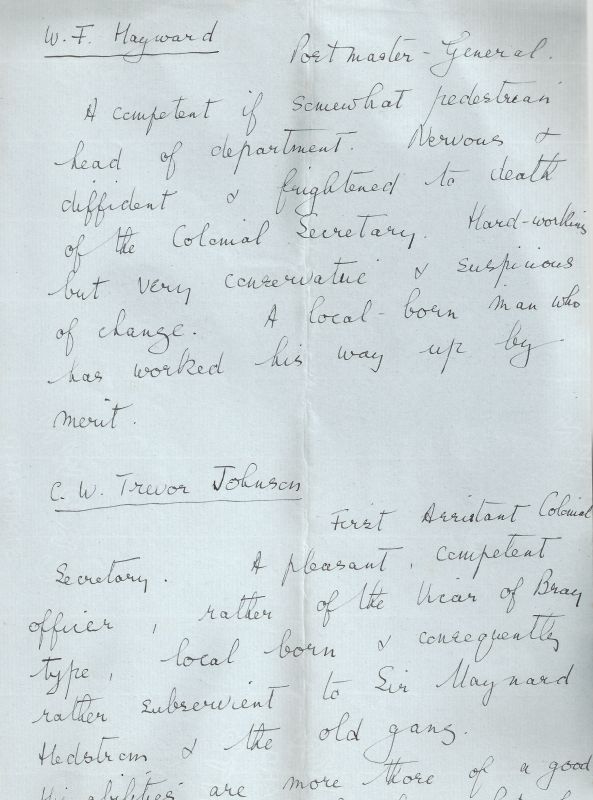 W. F. Hayward
Postmaster-General.
A competent if somewhat pedestrian
head of department. Nervous &
diffident & frightened to death
of the Colonial Secretary. Hard-working
but very conservative & suspicious
of change. A local-born man who
has worked his way up by
merit.
C. W. Trevor Johnson
First Assistant Colonial
Secretary. A pleasant, competent
officer, rather of the Vicar of Bray
type, local born & consequently
rather subservient to Sir Maynard
Hedstrom & the old gang.
His abilities are more those of a good